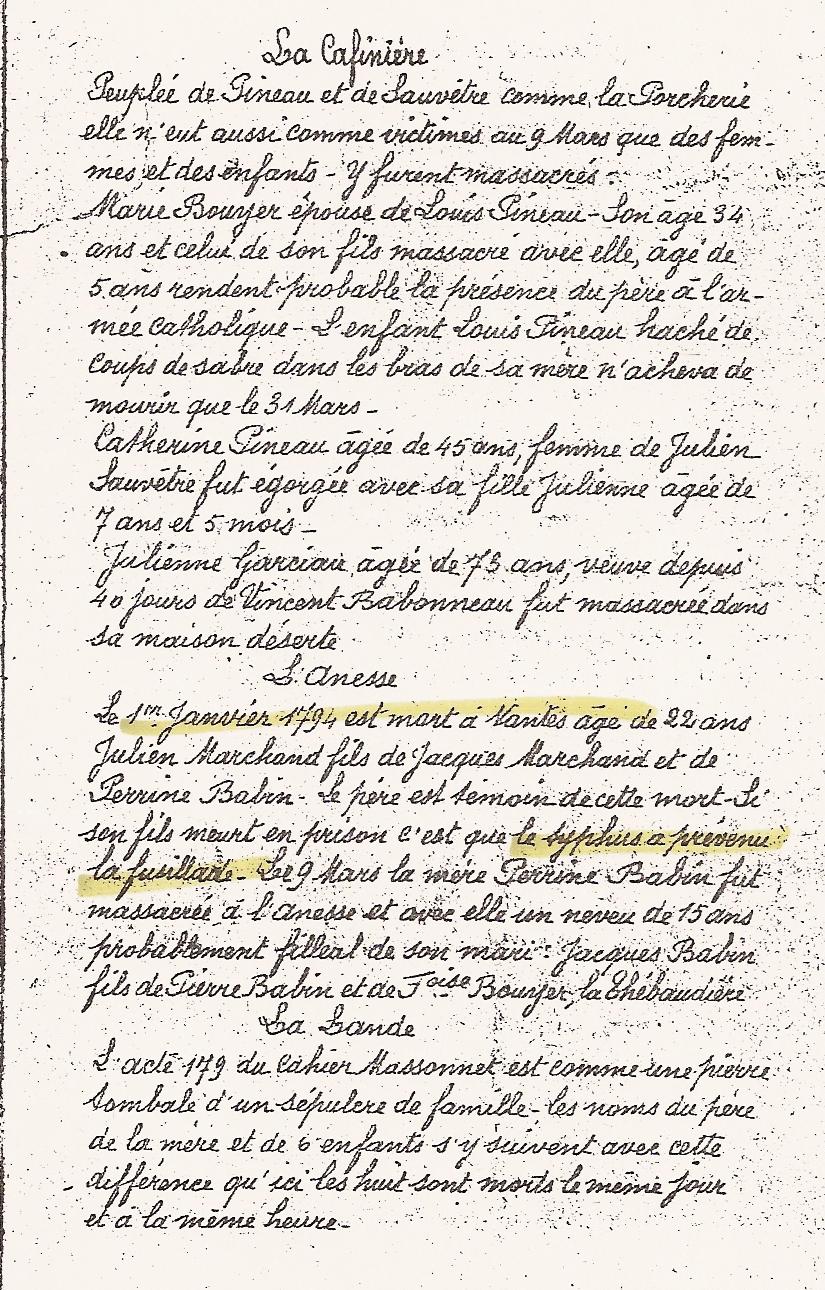 La Cafinière
Peuplée de Pineau et de Sauvêtre comme la Porcherie
elle n'eut aussi comme victimes au 9 Mars que des fem-
mes et des enfants - Y furent massacrés :
Marie Bouyer épouse de Louis Pineau - Son âge 34
ans et celui de son fils massacré avec elle, âgé de
5 ans rendent probable la présence du père à l'ar-
mée catholique - L'enfant Louis Pineau haché de
coups de sabre dans les bras de sa mère n'acheva de
mourir que le 31 Mars -
Catherine Pineau âgée de 45 ans, femme de Julien
Sauvêtre fut égorgée avec sa fille Julienne âgée de
7 ans et 5 mois -
Julienne Garciau âgée de 73 ans, veuve depuis
40 jours de Vincent Babonneau fut massacrée dans
sa maison déserte
L'Anesse
Le 1er Janvier 1794 est mort à Nantes âgé de 22 ans
Julien Marchand fils de Jacques Marchand et de
Perrine Babin - Le père est témoin de cette mort - Si
son fils meurt en prison c'est que le typhus a prévenu
la fusillade - Le 9 Mars la mère Perrine Babin fut
massacrée à l'Anesse et avec elle un neveu de 15 ans
probablement filleal de son mari : Jacques Babin
fils de Pierre Babin et de Foise Bouyer, la Thébaudière
La Lande
L'acte 179 du cahier Massonnet est comme une pierre
tombale d'un sépulcre de famille - les noms du père
de la mère et de 6 enfants s'y suivent avec cette
différence qu'ici les huit sont morts le même jour
et à la même heure -